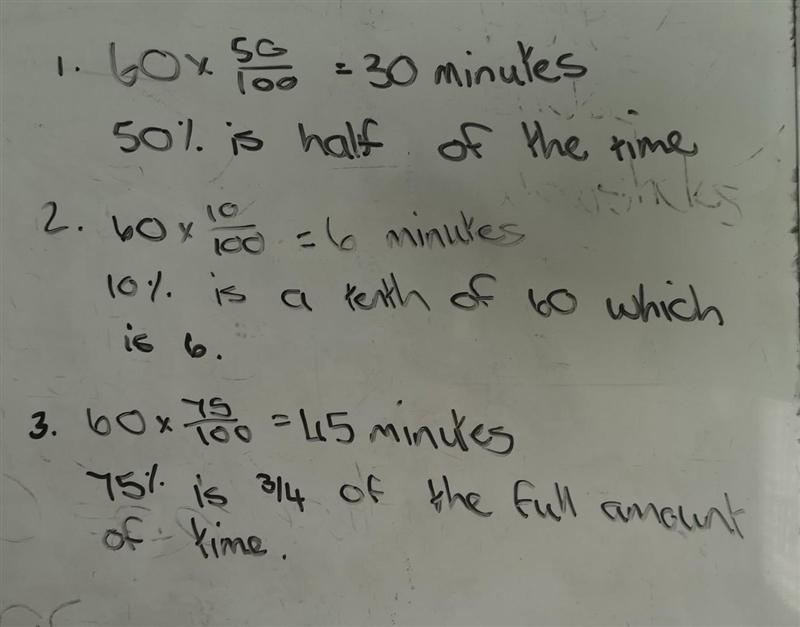 1. 60 x 50/100 = 30 minutes
50% is half of the time
2. 60 x 10/100 = 6 minutes
10% is a tenth of 60 which
is 6.
3. 60 x 75/100 = 45 minutes
75% is 3/4 of the full amount
of time.